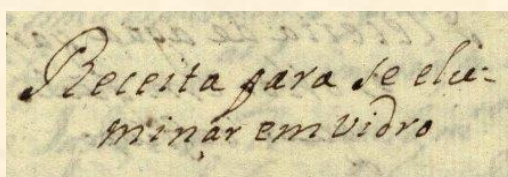 Receita para se elu-
minar em vidro